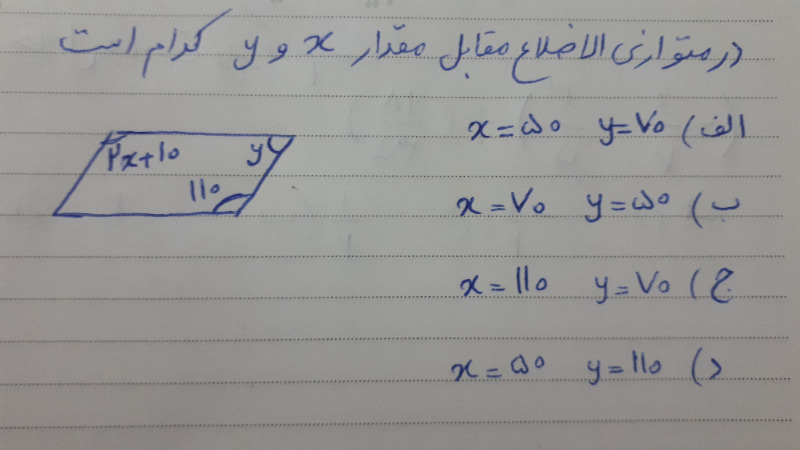 در متوازی الاضلاع مقابل مقدار x و y کدام است
الف) x=۵۰ y=۷۰
۲x+۱۰
y
۱۱۰
ب) x=۷۰ y=۵۰
ج) x=۱۱۰ y=۷۰
د) x=۵۰ y=۱۱۰